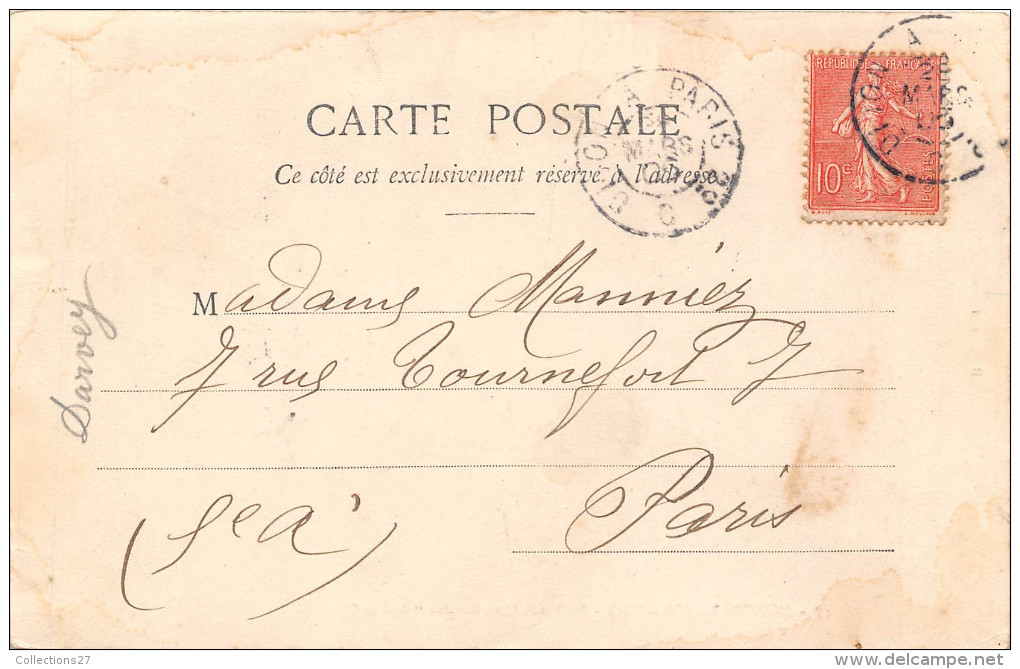 CARTE POSTALE
Ce côté est exclusivement réservé à l'adresse
RÉPUBLIQUE FRANÇAISE
10c
POSTES
DIJON A PARIS
MARS
DIJON A
MARS
Madame Mannier
7 rue Tournefort 7
Paris
Darvey
Collections27
www.delcampe.net